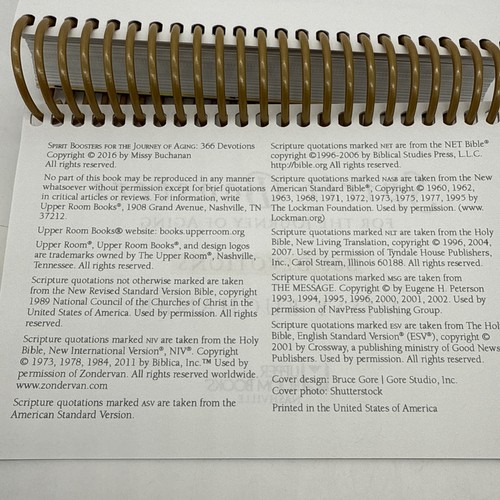 SPIRIT BOOSTERS FOR THE JOURNEY OF AGING: 366 Devotions
Copyright © 2016 by Missy Buchanan
All rights reserved.
No part of this book may be reproduced in any manner
whatsoever without permission except for brief quotations
in critical articles or reviews. For information, write
Upper Room Books®, 1908 Grand Avenue, Nashville, TN
37212.
Upper Room Books® website: books.upperroom.org
Upper Room®, Upper Room Books®, and design logos
are trademarks owned by The Upper Room®, Nashville,
Tennessee. All rights reserved.
Scripture quotations not otherwise marked are taken
from the New Revised Standard Version Bible, copyright
1989 National Council of the Churches of Christ in the
United States of America. Used by permission. All rights
reserved.
Scripture quotations marked NIV are taken from the Holy
Bible, New International Version®, NIV®. Copyright
© 1973, 1978, 1984, 2011 by Biblica, Inc.™ Used by
permission of Zondervan. All rights reserved worldwide.
www.zondervan.com
Scripture quotations marked ASV are taken from the
American Standard Version.
Scripture quotations marked NET are from the NET Bible®
copyright ©1996-2006 by Biblical Studies Press, L.L.C.
http://bible.org All rights reserved.
Scripture quotations marked NASB are taken from the New
American Standard Bible®, Copyright © 1960, 1962,
1963, 1968, 1971, 1972, 1973, 1975, 1977, 1995 by
The Lockman Foundation. Used by permission. (www.
Lockman.org)
Scripture quotations marked NLT are taken from the Holy
Bible, New Living Translation, copyright © 1996, 2004,
2007. Used by permission of Tyndale House Publishers,
Inc., Carol Stream, Illinois 60188. All rights reserved.
Scripture quotations marked MSG are taken from
THE MESSAGE. Copyright © by Eugene H. Peterson
1993, 1994, 1995, 1996, 2000, 2001, 2002. Used by
permission of NavPress Publishing Group.
Scripture quotations marked ESV are taken from The Hol
Bible, English Standard Version® (ESV®), copyright ©
2001 by Crossway, a publishing ministry of Good News
Publishers. Used by permission. All rights reserved.
Cover design: Bruce Gore | Gore Studio, Inc.
Cover photo: Shutterstock
Printed in the United States of America